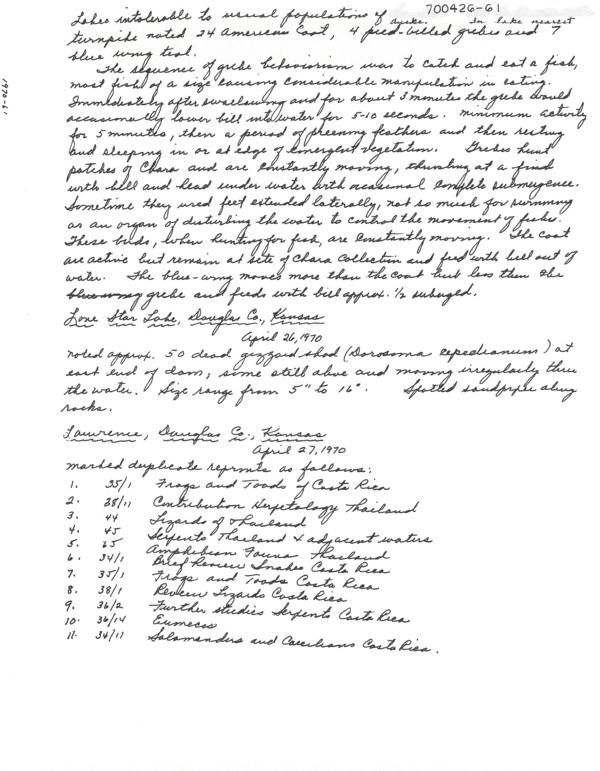 700426-61
Lakes intolerable to usual populations of In lake nearest
turnpike noted 24 American Coot, 4 pied-billed grebes and 7
blue wing teal.
The sequence of grebe behaviorism was to catch and eat a fish,
most fish of a size causing considerable manipulation in eating.
Immediately after swallowing and for about 3 minutes the grebe would
occasionally lower bill into water for 5-10 seconds. Minimum activity
for 5 minutes, then a period of preening feathers and then resting
and sleeping in or at edge of emergent vegetation. Grebes hunt
patches of Chara and are constantly moving, thrusting at a find
with bill and head under water with occasional complete submergence.
Sometime they used feet extended laterally, not so much for swimming
as an organ of disturbing the water to control the movement of fishes.
These birds, when hunting for fish, are constantly moving. The coot
are active but remain at site of Chara collection and feed with bill out of
water. The blue-wing moves more than the coot but less then the
blue-wing grebe and feeds with bill approx. 1/2 submerged.
Lone Star Lake, Douglas Co., Kansas
April 26, 1970
noted approx. 50 dead gizzard shad (Dorosoma cepedianum) at
east end of dam, some still alive and moving irregularly thru
the water. Size range from 5" to 16". Spotted sandpiper along
rocks.
Lawrence, Douglas Co., Kansas
April 27, 1970
marked duplicate reprints as follows:
1. 35/1 Frogs and Toads of Costa Rica
2. 38/11 Contribution Herpetology Thailand
3. 44 Lizards of Thailand
4. 45 Serpents Thailand & adjacent waters
5. 65 Amphibian Fauna Thailand
6. 34/1 Brief Review Snakes Costa Rica
7. 35/1 Frogs and Toads Costa Rica
8. 38/1 Review Lizards Costa Rica
9. 36/2 Further studies Serpents Costa Rica
10. 36/14 Eumeces
11. 34/11 Salamanders and Caecilians Costa Rica.
1970-61